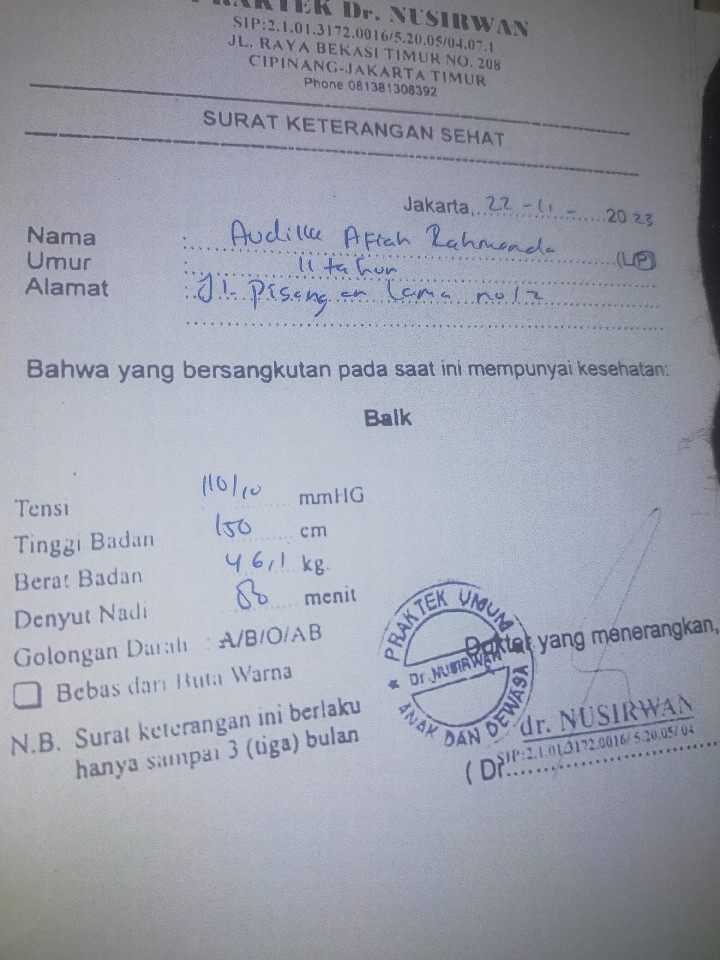 PRAKTEK Dr. NUSIRWAN
SIP:2.1.01.3172.0016/5.20.05/04.07.1
JL. RAYA BEKASI TIMUR NO. 208
CIPINANG-JAKARTA TIMUR
Phone 081381308392
SURAT KETERANGAN SEHAT
Jakarta, 22 - 11 - 2023
Nama : Rahmanda (L/P)
Umur : 11 tahun
Alamat : Jl. Pisangan Lama no 12
Bahwa yang bersangkutan pada saat ini mempunyai kesehatan:
Baik
Tensi 110/10 mmHG
Tinggi Badan 150 cm
Berat Badan 46,1 kg.
Denyut Nadi 80 menit
Golongan Darah : A/B/O/AB
Bebas dari Buta Warna
N.B. Surat keterangan ini berlaku
hanya sampai 3 (tiga) bulan
PRAKTEK UMUM
Dr. NUSIRWAN
ANAK DAN DEWASA
Dokter yang menerangkan,
dr. NUSIRWAN
SIP:2.1.01.3172.0016/5.20.05/04
( Dr.